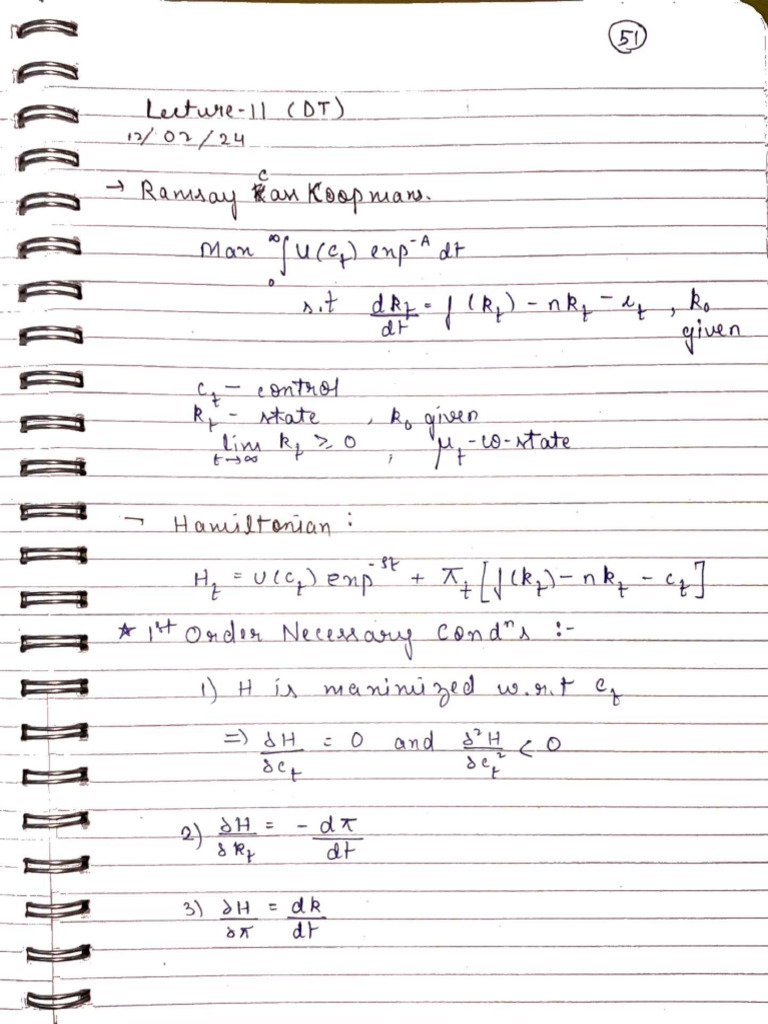 51
Lecture-11 (DT)
12/02/24
→ Ramsay Cas Koopmans.
Max ∫₀^∞ U(c_t) exp^-A dt
s.t dk_t/dt = f(k_t) - nk_t - c_t , k₀ given
c_t - control
k_t - state , k₀ given
lim t→∞ k_t ≥ 0 , μ_t - co-state
→ Hamiltonian :
H_t = U(c_t) exp^-St + π_t [f(k_t) - nk_t - c_t]
* 1st Order Necessary Condⁿs :-
1) H is maximized w.r.t c_t
=> δH/δc_t = 0 and δ²H/δc_t² < 0
2) δH/δk_t = - dπ/dt
3) δH/δπ = dk/dt